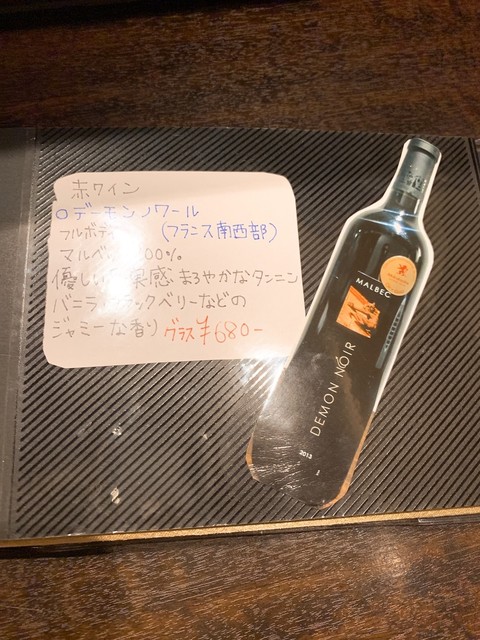 赤ワイン
○デーモンノワール
フルボデ (フランス南西部)
マルベ 00%
優しい 果感 まろやかなタンニン
バニラ ラックベリーなどの
ジャミーな香り グラス ¥680-
MALBEC
DEMON NOIR
2013